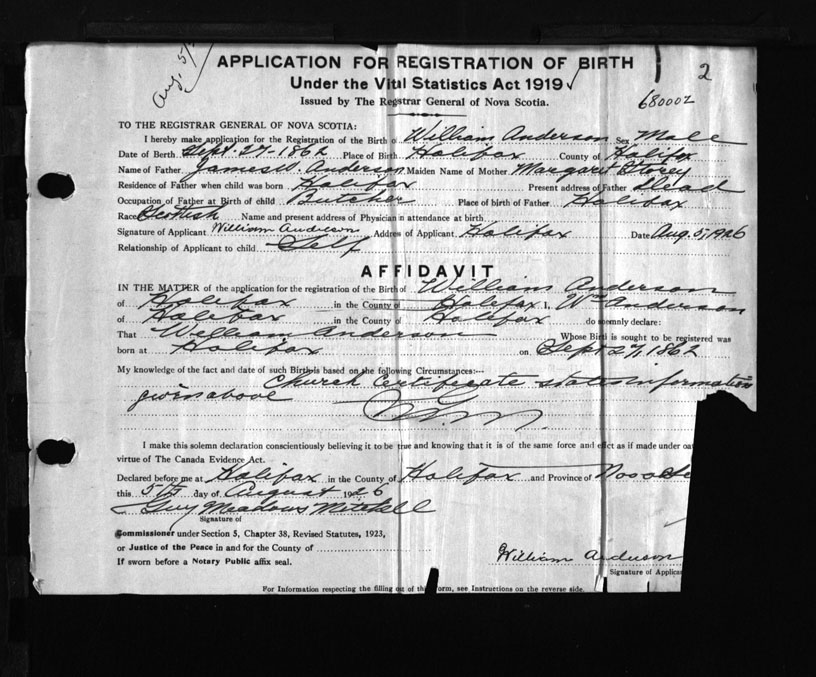 Aug. 5/
APPLICATION FOR REGISTRATION OF BIRTH
2
Under the Vital Statistics Act 1919
Issued by The Registrar General of Nova Scotia.
680002
TO THE REGISTRAR GENERAL OF NOVA SCOTIA:
I hereby make application for the Registration of the Birth of William Anderson Sex Male
Date of Birth Sept. 27-1862 Place of Birth Halifax County of Halifax
Name of Father James W. Anderson Maiden Name of Mother Margaret Storey
Residence of Father when child was born Halifax Present address of Father Dead
Occupation of Father at Birth of child Butcher Place of birth of Father Halifax
Race Scottish Name and present address of Physician in attendance at birth
Signature of Applicant William Anderson Address of Applicant Halifax Date Aug. 5, 1926
Relationship of Applicant to child Self
AFFIDAVIT
IN THE MATTER of the application for the registration of the Birth of William Anderson
of Halifax in the County of Halifax I, Wm Anderson
of Halifax in the County of Halifax do solemnly declare:
That William Anderson Whose Birth is sought to be registered was
born at Halifax on Sept 27, 1862
My knowledge of the fact and date of such Birth is based on the following Circumstances:—
Church Certificate states information
given above
I make this solemn declaration conscientiously believing it to be true and knowing that it is of the same force and effect as if made under oat
virtue of The Canada Evidence Act.
Declared before me at Halifax in the County of Halifax and Province of Nova Sc
this 5th day of August 1926
Guy Meadows Mitchell
Signature of
Commissioner under Section 5, Chapter 38, Revised Statutes, 1923,
or Justice of the Peace in and for the County of
If sworn before a Notary Public affix seal.
William Anderson
Signature of Applican
For Information respecting the filling out of this form, see Instructions on the reverse side.